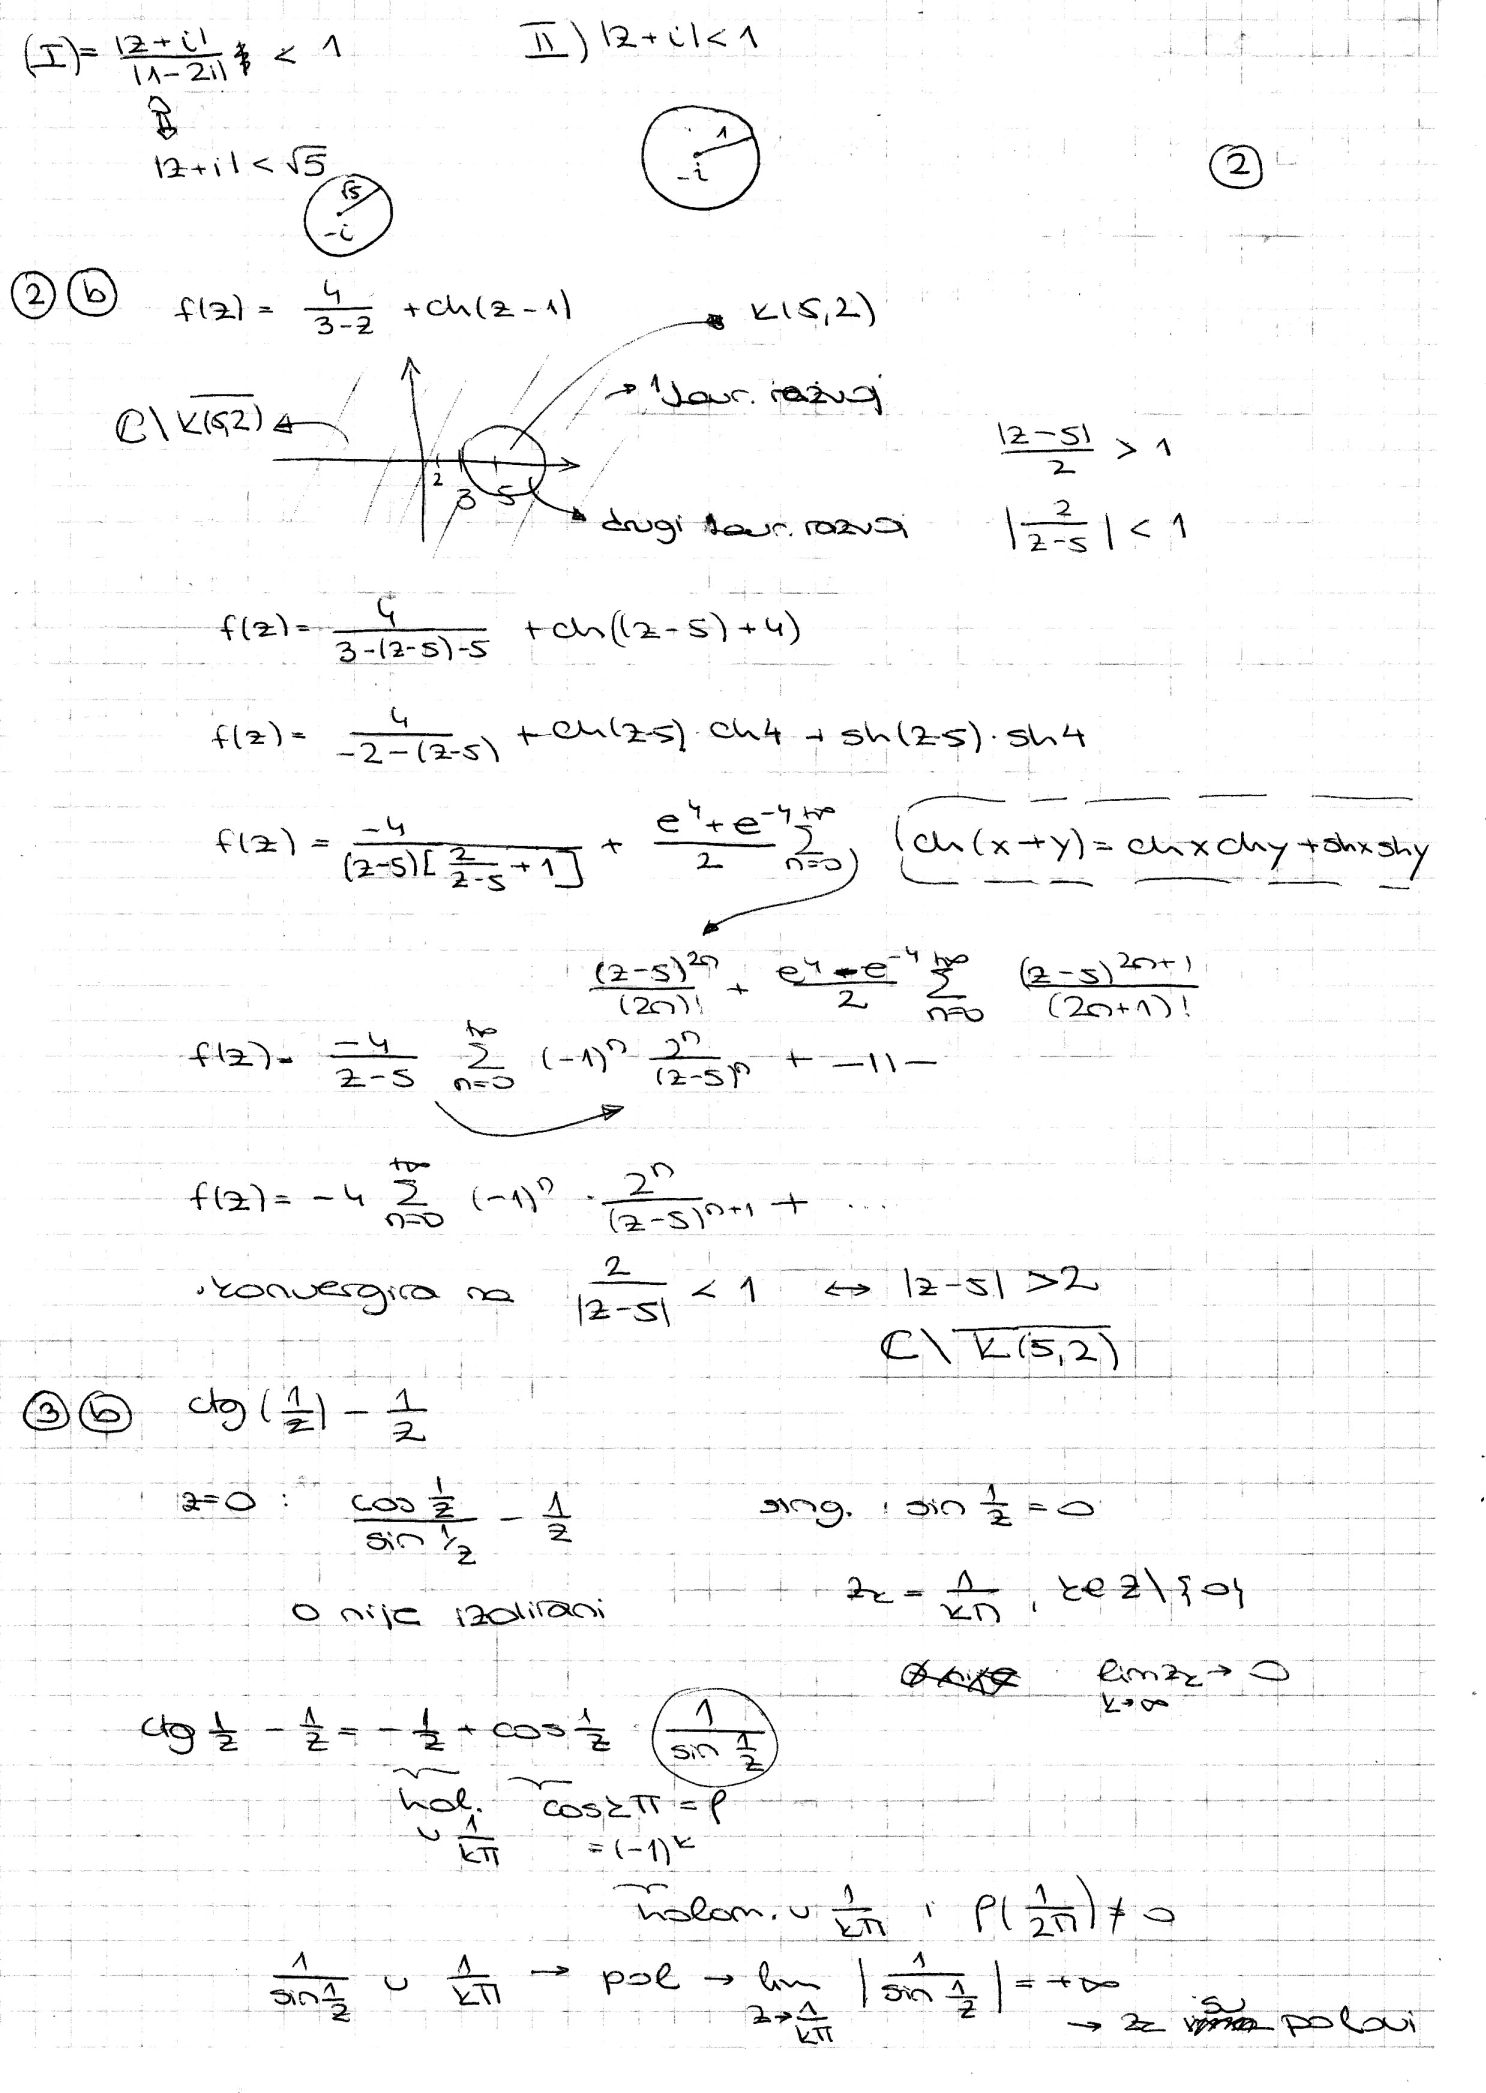 (I) = |z+i| / |1-2i| < 1
II) |z+i| < 1
|z+i| < √5
√5
-i
1
-i
②
② ⓑ f(z) = 4/(3-z) + ch(z-1)
K(5,2)
ℂ\K̅(̅5̅,̅2̅)̅
Laur. razvoj
2 3 5
drugi Laur. razvoj
|z-5|/2 > 1
|2/(z-5)| < 1
f(z) = 4/(3-(z-5)-5) + ch((z-5)+4)
f(z) = 4/(-2-(z-5)) + ch(z-5)·ch4 + sh(z-5)·sh4
f(z) = -4/((z-5)[2/(z-5)+1]) + (e^4+e^-4)/2 Σ_{n=0}^{+∞}
ch(x+y) = chxchy + shxshy
(z-5)^{2n}/(2n)! + (e^4-e^-4)/2 Σ_{n=0}^{+∞} (z-5)^{2n+1}/(2n+1)!
f(z) = -4/(z-5) Σ_{n=0}^{+∞} (-1)^n 2^n/(z-5)^n + -11-
f(z) = -4 Σ_{n=0}^{+∞} (-1)^n · 2^n/(z-5)^{n+1} + ...
konvergira na 2/|z-5| < 1 ↔ |z-5| > 2
ℂ\K̅(̅5̅,̅2̅)̅
③ ⓑ ctg(1/z) - 1/z
z=0 : cos 1/z / sin 1/z - 1/z
sing. : sin 1/z = 0
z_k = 1/kπ, k∈Z\{0}
0 nije izolirani
lim z_k → 0
k→∞
ctg 1/z - 1/z = -1/z + cos 1/z · 1/(sin 1/z)
hol. cos kπ = f
u 1/kπ = (-1)^k
holom. u 1/kπ i f(1/kπ) ≠ 0
1/(sin 1/z) u 1/kπ → pol → lim_{z→1/kπ} |1/(sin 1/z)| = +∞
→ z_k su polovi